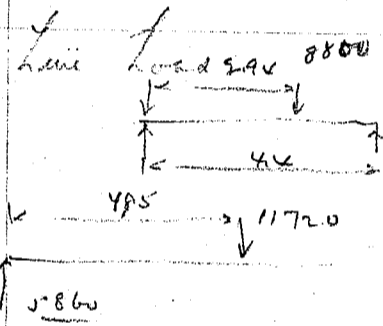 Live Load 2.94 8800
44
485 11720
5860